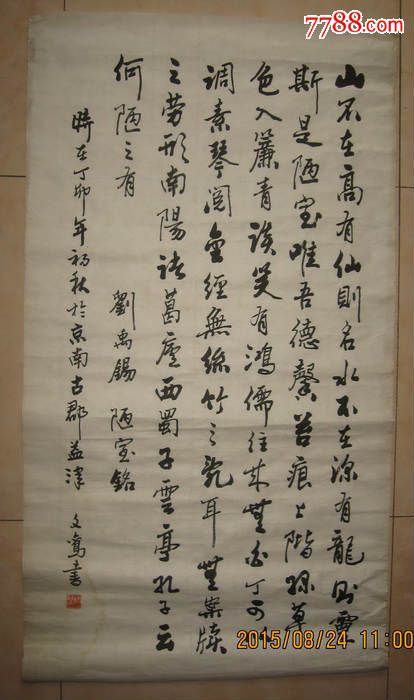 7788.com
山不在高有仙則名水不在深有龍則靈
斯是陋室唯吾德馨苔痕上階綠草
色入簾青談笑有鴻儒往來無白丁可以
調素琴閱金經無絲竹之亂耳無案牘
之勞形南陽諸葛廬西蜀子雲亭孔子云
何陋之有
劉禹錫 陋室銘
時在丁卯年初秋於京南古郡益津
文嵩書
2015/08/24 11:00